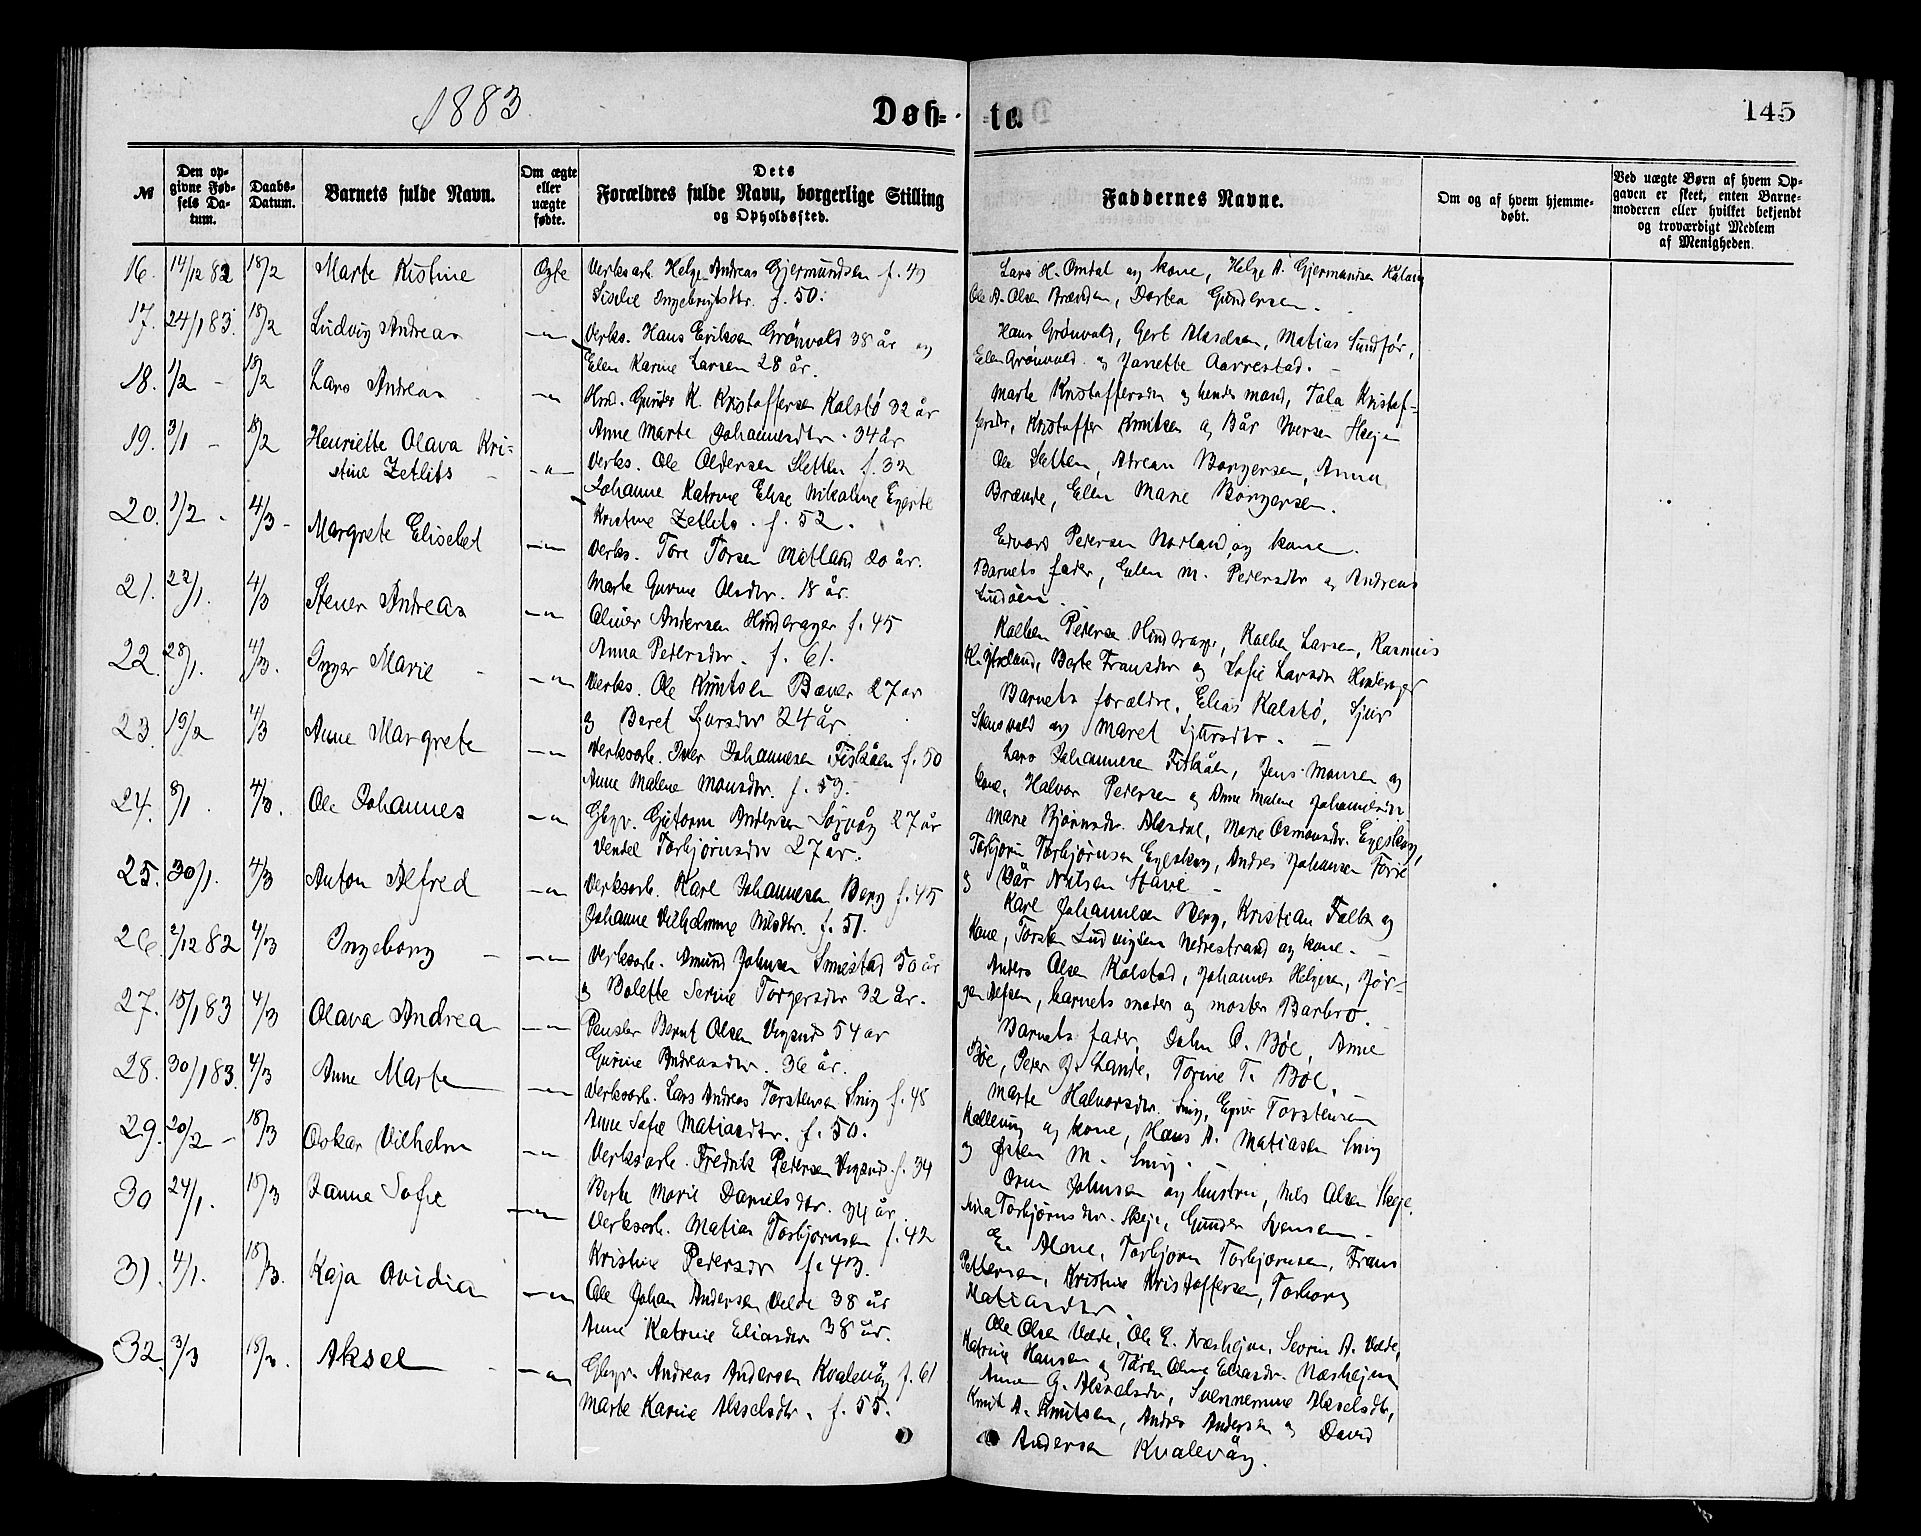 1883
Døb-
te.
145
№
Den op-
givne Fød-
sels Da-
tum.
Daabs-
Datum.
Barnets fulde Navn.
Om ægte
eller
uægte
fødte.
Dets
Forældres fulde Navn, borgerlige Stilling
og Opholdssted.
Faddernes Navne.
Om og af hvem hjemme-
døbt.
Ved uægte Børn af hvem Op-
gaven er skeet, enten Barne-
moderen eller hvilket bekjendt
og troværdigt Medlem
af Menigheden.
16. 14/12 82 18/2 Marte Kistine Verksarb. Helge Andreas Gjermundsen f. 49
Sislie Ingebrigtsdtr. f. 50.
Lars H. Omdal og kone, Helge A. Gjermundsen
Ole A. Olsen Brænden, Dortea Gundersen
17. 24/1 83. 18/2 Ludvig Andreas Verks. Hans Eriksen Grønvold 38 år og
Elen Karine Larsen 28 år.
Hans Grønvold, Gert Akselsen, Matias Sundfør,
Elen Grønvold og Janette Aarrestad.
18. 1/2 - 18/2 Lars Andreas Hmd. Gunder K. Kristoffersen Kalstø 32 år
Anne Marte Johannesdtr. 34 år
Marte Kristoffersdtr og hendes mand, Tala Kristof-
fersdtr, Kristoffer Knutsen og Bår Iversen
19. 3/1 - 18/2 Henriette Olava Kri-
stine Zetlits Verks. Ole Oldersen Sletten f. 32
Johanne Katrine Elise Nikoline
Kristine Zetlits. f. 52.
Ole Sletten, Adrean Borgersen, Anna
Brænde, Elen Marie Borgersen.
20. 1/2 - 4/3 - Margrete Elisebet Verks. Tore Torsen Matland 20 år.
Marte Gurine Olsdtr. 18 år.
Edvard Pedersen Norland og kone.
Barnets fader, Elen M. Pedersdtr og Andreas
21. 22/1. 4/3 Stener Andreas Oliver Andersen Hinderager f. 45
Anna Pedersdtr. f. 61.
Kolben Pedersen Hinderager, Kolben Larsen, Rasmus
Berte Fransdtr og Sofie Larsdtr Hinderager
22. 28/1. 4/3. Inger Marie Verks. Ole Knutsen Bauer 27 år
og Beret Sjursdtr 24 år
Barnets forældre, Elias Kalstø, Sjur
og Maret Sjursdtr.
23. 19/2 4/3 Anne Margrete Verksarb. Iver Johannesen Fiskåen f. 50
Anne Malene Monsdtr. f. 59.
Lars Johannesen Fiskåen, Jens Monsen og
kone, Halvor Pedersen og Anne Malene Johannesdtr.
24. 8/1. 4/3. Ole Johannes Gbgr. Gutorm Andersen Sørvåg 27 år
Vendel Torbjørnsdtr 27 år.
Marie Bjørnsdtr. Alasdal, Marie Osmundsdr. Eyeskog,
Torbjørn Torbjørnsen Eyeskog, Andres Johansen
og Bår Nilsen Stave
25. 30/1. 4/3 Anton Alfred Verksarb. Karl Johannesen Berg f. 45
Johanne Vilhelmine Nilsdtr. f. 51.
Karl Johannesen Berg, Kristian Falk og
kone, Torsten Ludvigsen Nedrestrand og kone.
26. 2/12 82 4/3 Ingeborg Verksarb. Amund Johnsen Smestad 50 år
og Bolette Serine Torgersdtr 32 år.
Anders Olsen Kolstad, Johannes Helgesen, Jør-
gen barnets moder og moster Barbro.
27. 15/1 83 4/3 Olava Andrea Pensler Bernt Olsen 54 år
Gurine Andreasdtr. 36 år.
Barnets fader, John O. Bøe, Anne
Bøe, Peder B. Lande, Torine T. Bøe.
28. 30/1 83. 4/3 Anne Marte Verksarb. Lars Andreas Torstensen Snig f. 48
Anne Sofie Matiasdtr. f. 50.
Marte Halvorsdtr. Snig, Torstensen
og kone, Hans A. Matiasen Snig
og Østen M. Snig.
29. 20/2 - 18/3 Oskar Vilhelm Verksarb. Fredrik Pedersen f. 34
Berte Marie Danielsdtr. 34 år
Johnsen og hustru, Nils Olsen Skeje,
Torbjørnsdtr. Skeje, Gunder Svensen
30 24/1. 18/3 Janna Sofie Verksarb. Matias Torbjørnsen f. 42
Kristine Pedersdtr f. 43.
Torbjørn Torbjørnsen, Frans
Pettersen, Kristine Kristoffersen, Torborg
Matiasdtr.
31. 4/1. 18/3. Kaja Ovidia Ole Johan Andersen Velde 38 år
Anne Katrine Eliasdtr 38 år.
Ole Olsen Velde, Ole E. Næshejm, Severin A. Velde,
Katrine Hansen og Olme Eliasdr. Næshejm
32. 3/3 18/3. Aksel Gbgr. Andreas Andersen Kvalevåg f. 61
Marte Karine Akselsdtr. f. 55.
Anna G. Akselsdtr, Svennemine Akselsdtr,
Knut A. Knutsen, Andres Andersen og David
Andersen Kvalevåg.